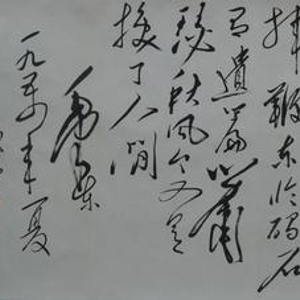 揮鞭东临碣石
有遺篇蕭
瑟秋风今又是
換了人間
毛泽东
一九五四年夏